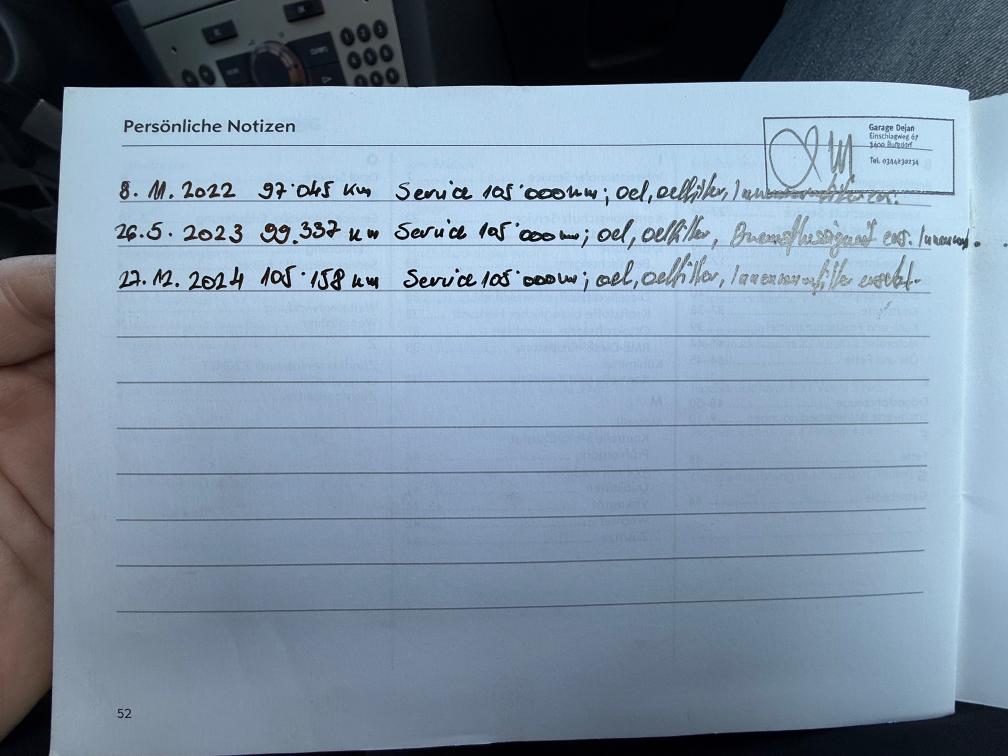 Persönliche Notizen
Garage Dejan
Einschlagweg 67
3400 Burgdorf
Tel. 0344230234
8. 11. 2022 97'045 km Service 105'000km; oel, oelfilter, Innenraumfilter ers.
26.5. 2023 99.337 km Service 105'000km; oel, oelfilter, Bremsflüssigkeit ers. Innenraumf.
27.12. 2024 105'158 km Service 105'000km; oel, oelfilter, Innenraumfilter ersetzt.
52